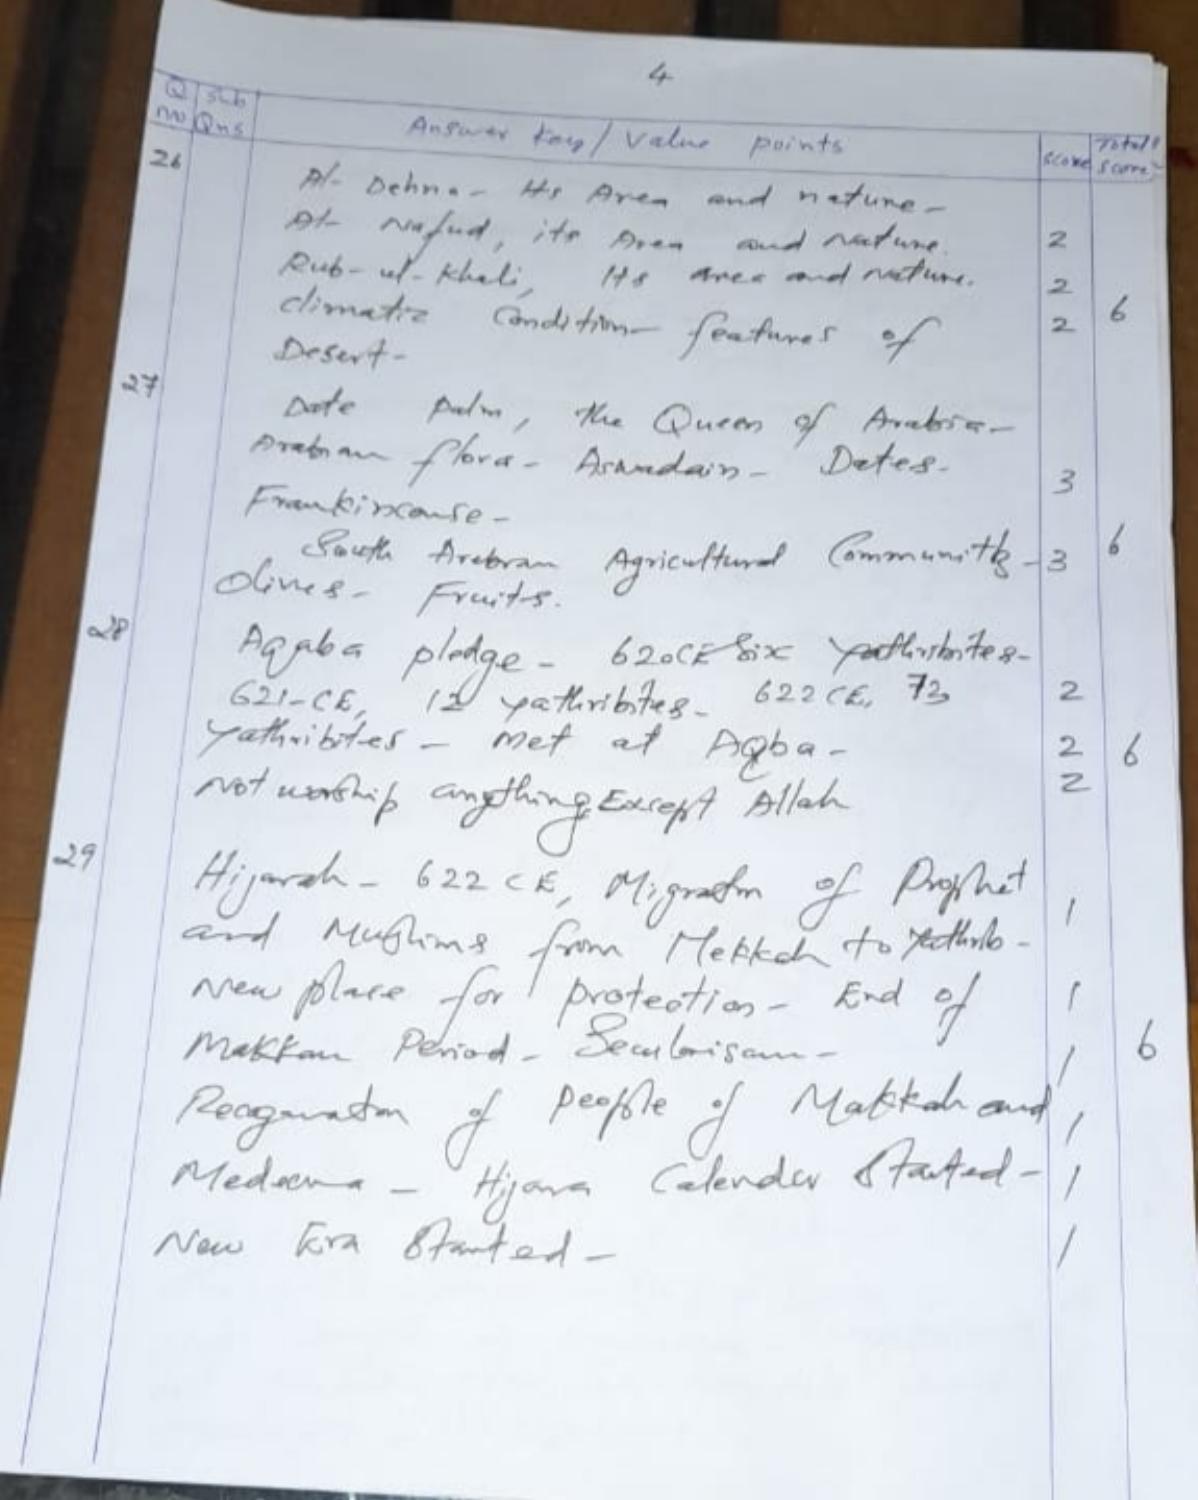 4
Q no Sub Qns Answer Key/Value points Score Total score
26
Al- Dehna- Its Area and nature-
Al- Nafud, its Area and nature. 2
Rub-ul-Khali, Its area and nature. 2
Climatic Condition- features of 2 6
Desert-
27
Date palm, the Queen of Arabia-
Arabian flora- Aswadain- Dates- 3
Frankincense-
South Arabian Agricultural Community- 3 6
Olives- Fruits.
28
Aqaba pledge- 620CE Six Yathribites-
621-CE, 12 yathribites- 622 CE, 73 2
Yathribites- met at Aqba- 2 6
Not worship anything Except Allah 2
29
Hijarah- 622 CE, Migration of Prophet 1
and Muslims from Mekkah to Yathrib-
New place for protection- End of 1
Makkan Period- Secularisam- 1 6
of People of Makkah and 1
Medeena- Hijara Calender Started- 1
New Era Started- 1